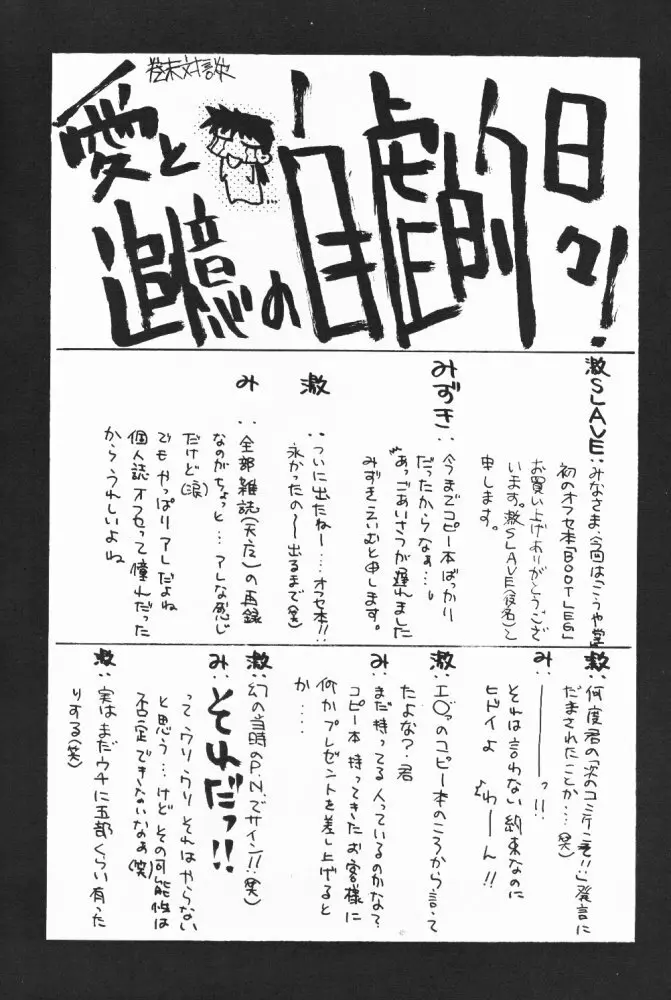 巻末対談
愛と
追憶の
自虐的
日々!
激SLAVE:みなさま、今回はこうや堂
初のオフセ本「BOOTLEG」
お買い上げありがとうござ
います。激SLAVE(仮名)と
申します。
みずき:今までコピー本ばっかり
だったからなぁ…
あっごあいさつが遅れました
みずきえいむと申します。
激:ついに出たねー…オフセ本!!
永かったの〜出るまで(笑)
み:全部雑誌(天伝)の再録
なのがちょっと…アレな感じ
だけど(涙)
でもやっぱりアレだよね
個人誌オフセって憧れだった
からうれしいよね
激:何度君の「次のコミケこそ!!」発言に
だまされたことか…(笑)
み:ーーーっ!!
それは言わない約束なのに
ヒドイよ わーーん!!
激:エ○っのコピー本のころから言って
たよな?君
み:まだ持ってる人っているのかな?
コピー本持ってきたお客様に
何かプレゼントを差し上げると
か…
激:幻の当時のP.N.でサイン!!(笑)
み:それだっ!!
ってウソウソそれはやらない
と思う…けどその可能性は
否定できないなぁ(笑)
激:実はまだウチに五部くらい有った
りする(笑)